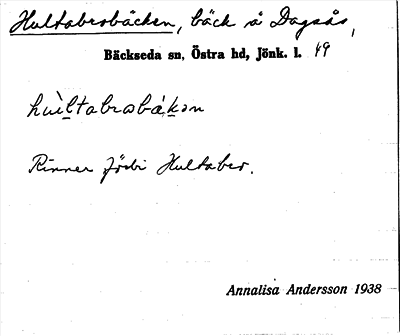 Hultabersbäcken, bäck å Dagsås,
Bäckseda sn, Östra hd, Jönk. l. 49
Rinner förbi Hultaber.
Annalisa Andersson 1938